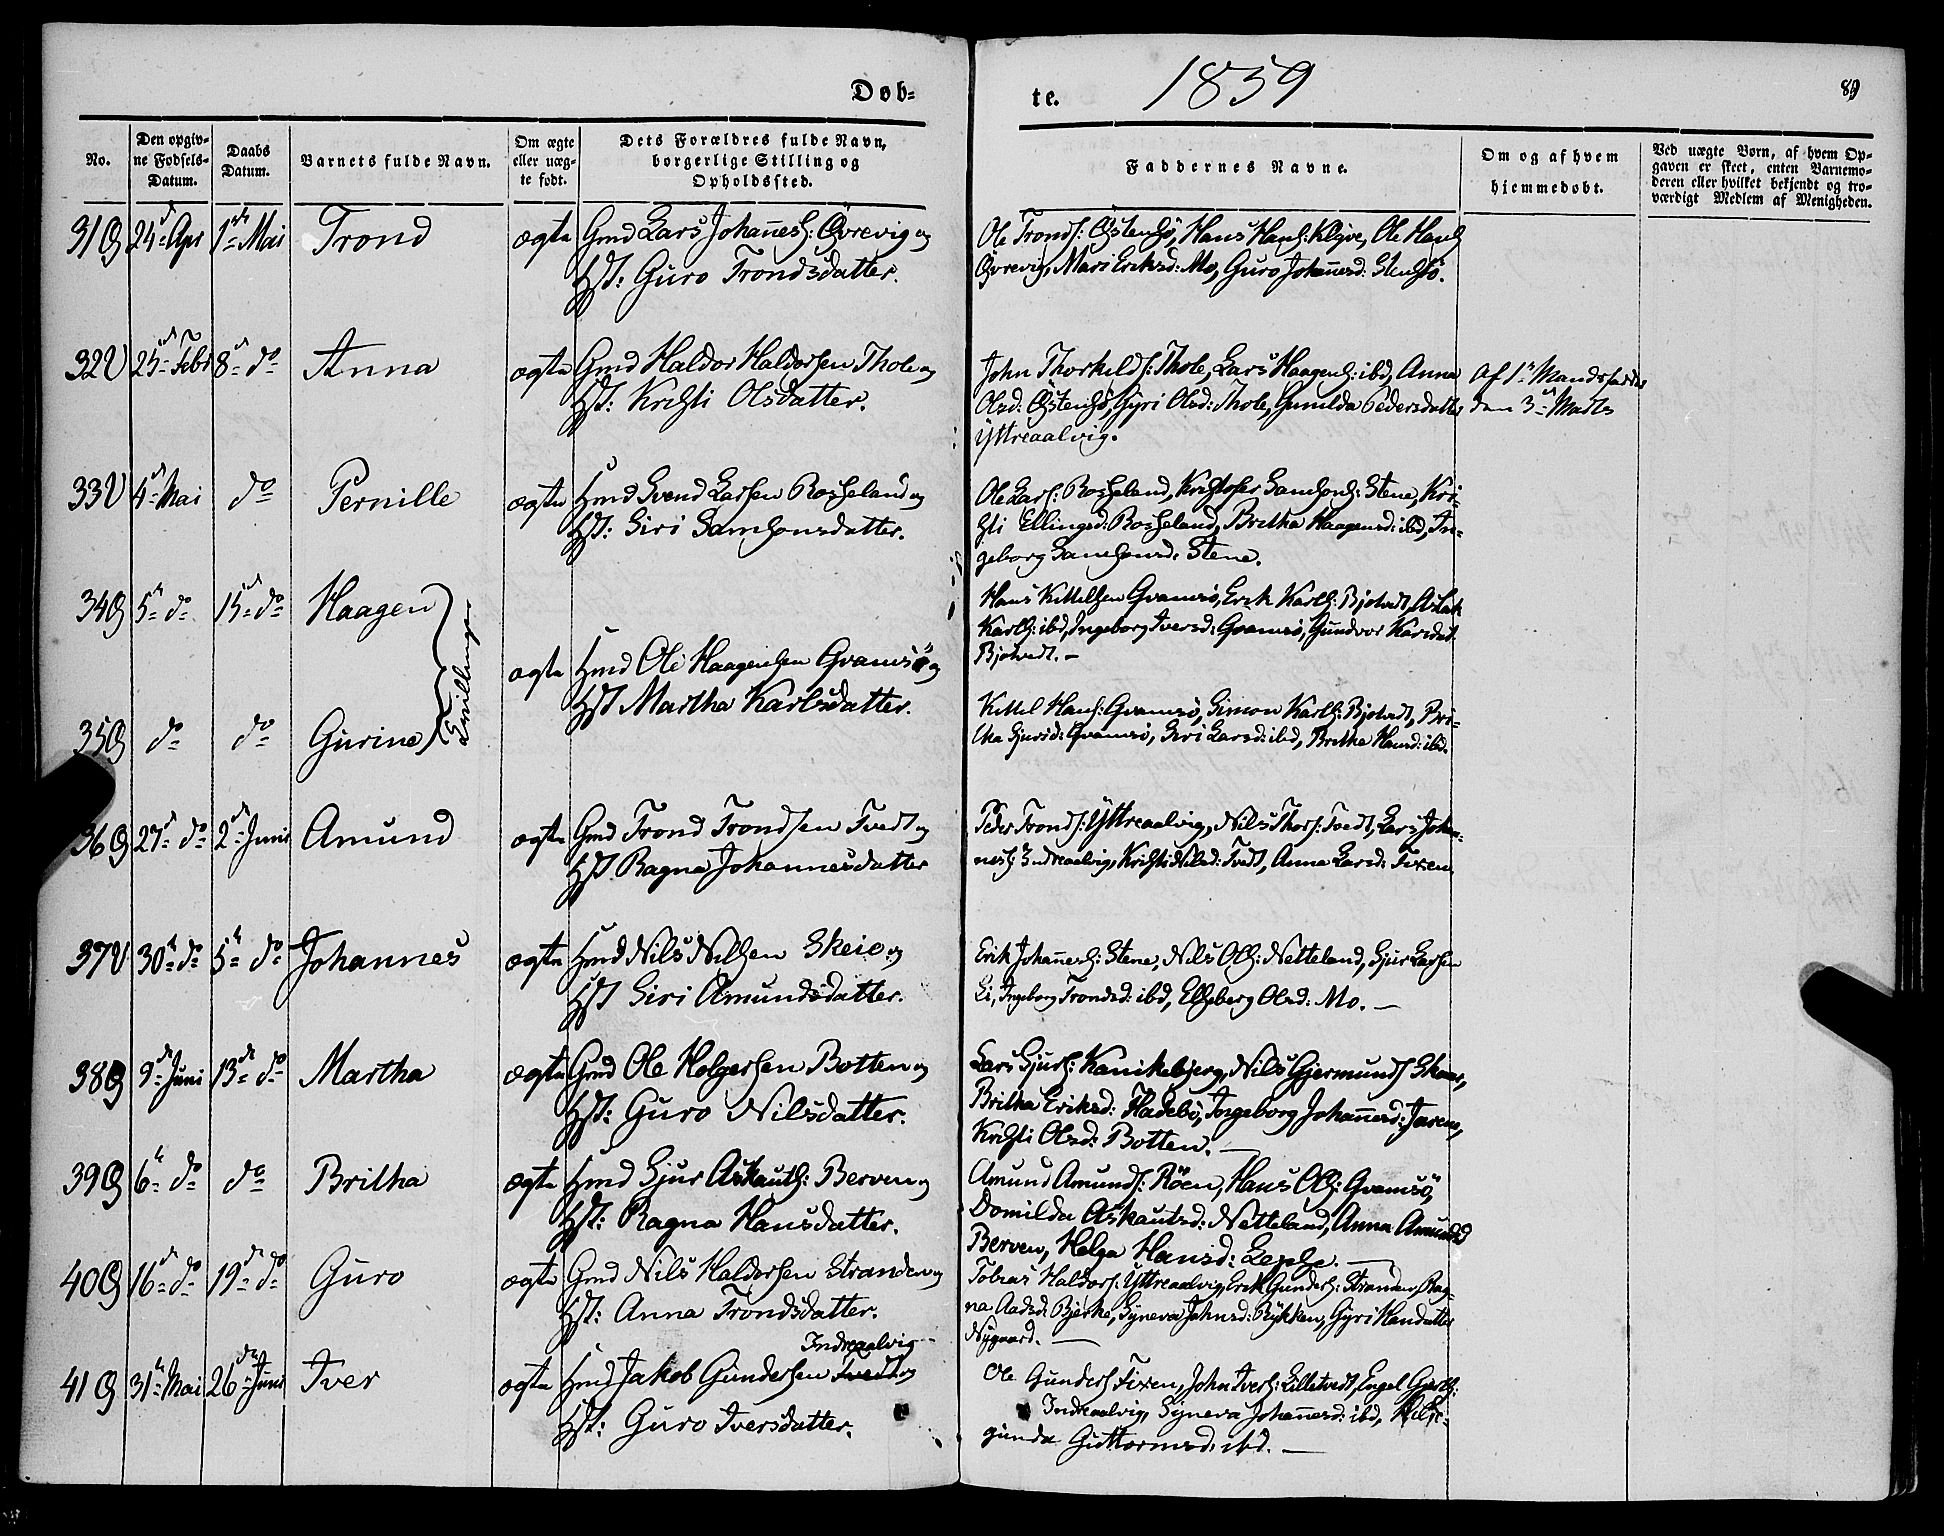 Døb-
te. 1859
89
No.
Den opgiv-
ne Fødsels-
Datum.
Daabs
Datum.
Barnets fulde Navn.
Om ægte
eller uæg-
te født.
Dets Forældres fulde Navn,
borgerlige Stilling og
Opholdssted.
Faddernes Navne.
Om og af hvem
hiemmedøbt.
Ved uægte Børn, af hvem Op-
gaven er skeet, enten Barnemo-
deren eller hvilket bekjendt og tro-
værdigt Medlem af Menigheden.
31 G 24d Apr 1ste Mai Trond ægte Gmd Lars Johannes: Øvrevig og
Hst: Guro Trondsdatter.
Ole Tronds: Østensø, Hans Hans: Klyve, Ole Hans
Øvrevig, Mari Eriksd: Mo, Guro Johannesd: Stensø.
32 V 25de Febr 8de do Anna ægte Gmd Haldor Haldorsen Thole og
Hst: Kristi Olsdatter.
John Thorkilds: Thole, Lars Haagens: ibd, Anna
Olsd: Østensø, Gyri Olsd: Thole, Gunilda Pedersdatter
Yttreaalvig.
Af
den 3de Marts
33 V 4de Mai do Pernille ægte Hmd Svend Larsen Rosseland og
Hst: Siri Samsonsdatter.
Ole Lars: Rosseland, Kristofer Samsons: Stene, Kri-
sti Ellingsd: Rosseland, Britha Haagensd: ibd, In-
geborg Samsonsd: Stene.
34 G 5te do 15de do Haagen
Tvillinger
ægte Hmd Ole Haagensen Qvamsö og
Hst Martha Karlsdatter.
Hans Kittilsen Qvamsö, Erik Karls: Bjotvedt, Aslak
Karls: ibd, Ingeborg Iversd: Qvamsö, Gundvor Karlsdat
Bjotvedt. —
35 G do do Gurine
Kittel Hans: Qvamsö, Simon Karls: Bjotvedt, Bri-
tha Sjursd: Qvamsö, Siri Larsd: ibd, Britha Hansd: ibd.
36 G 27de do 2den Juni Amund ægte Gmd Trond Trondsen Tvedt og
Hst Ragna Johannesdatter
Peder Tronds: Yttreaalvig, Nils Thors: Tvedt, Lars Johan-
nes: Indreaalvig, Kristi Nilsd: Tvedt, Anna Larsd: Fixen.
37 V 30te do 5te do Johannes ægte Hmd Nils Nilsen Skeie og
Hst Siri Amundsdatter.
Erik Johannes: Stene, Nils Ols: Netteland, Sjur Larsen
Li, Ingeborg Trondsd: ibd, Elseberg Olsd: Mo. —
38 G 9de Juni 13de do Martha ægte Gmd Ole Holgersen Botten og
Hst: Guro Nilsdatter.
Lars Sjurs: Kanikebjerg, Nils Gjermunds Skaar,
Britha Eriksd: Fladebø, Ingeborg Johannesd:
Kristi Olsd: Botten. —
39 G 6te do do Britha ægte Hmd Sjur Askauts: Berven og
Hst: Ragna Hansdatter.
Amund Amunds: Röen, Hans Ols: Qvamsö,
Domilda Askautsd: Netteland, Anna Amundsd
Berven, Helga Hansd: —
40 G 16de do 19de do Guro ægte Gmd Nils Haldorsen Stranden og
Hst: Anna Trondsdatter.
Tobias Haldors: Yttreaalvig, Erik Gunders: Stranden, Rag-
na Aadsd: Bjerke, Synneva Johnsd: Rykken, Gyri Hansdatter
Nygaard. —
Indreaalvig
41 G 31te Mai 26de Juni Iver ægte Hmd Jakob Gundersen Tvedt og
Hst: Guro Iversdatter.
Ole Gunders Fixen, John Ivers: Lilletvedt, Engel
Indreaalvig, Synneva Johannesd: ibd,
gunda Guttormsd: ibd. —